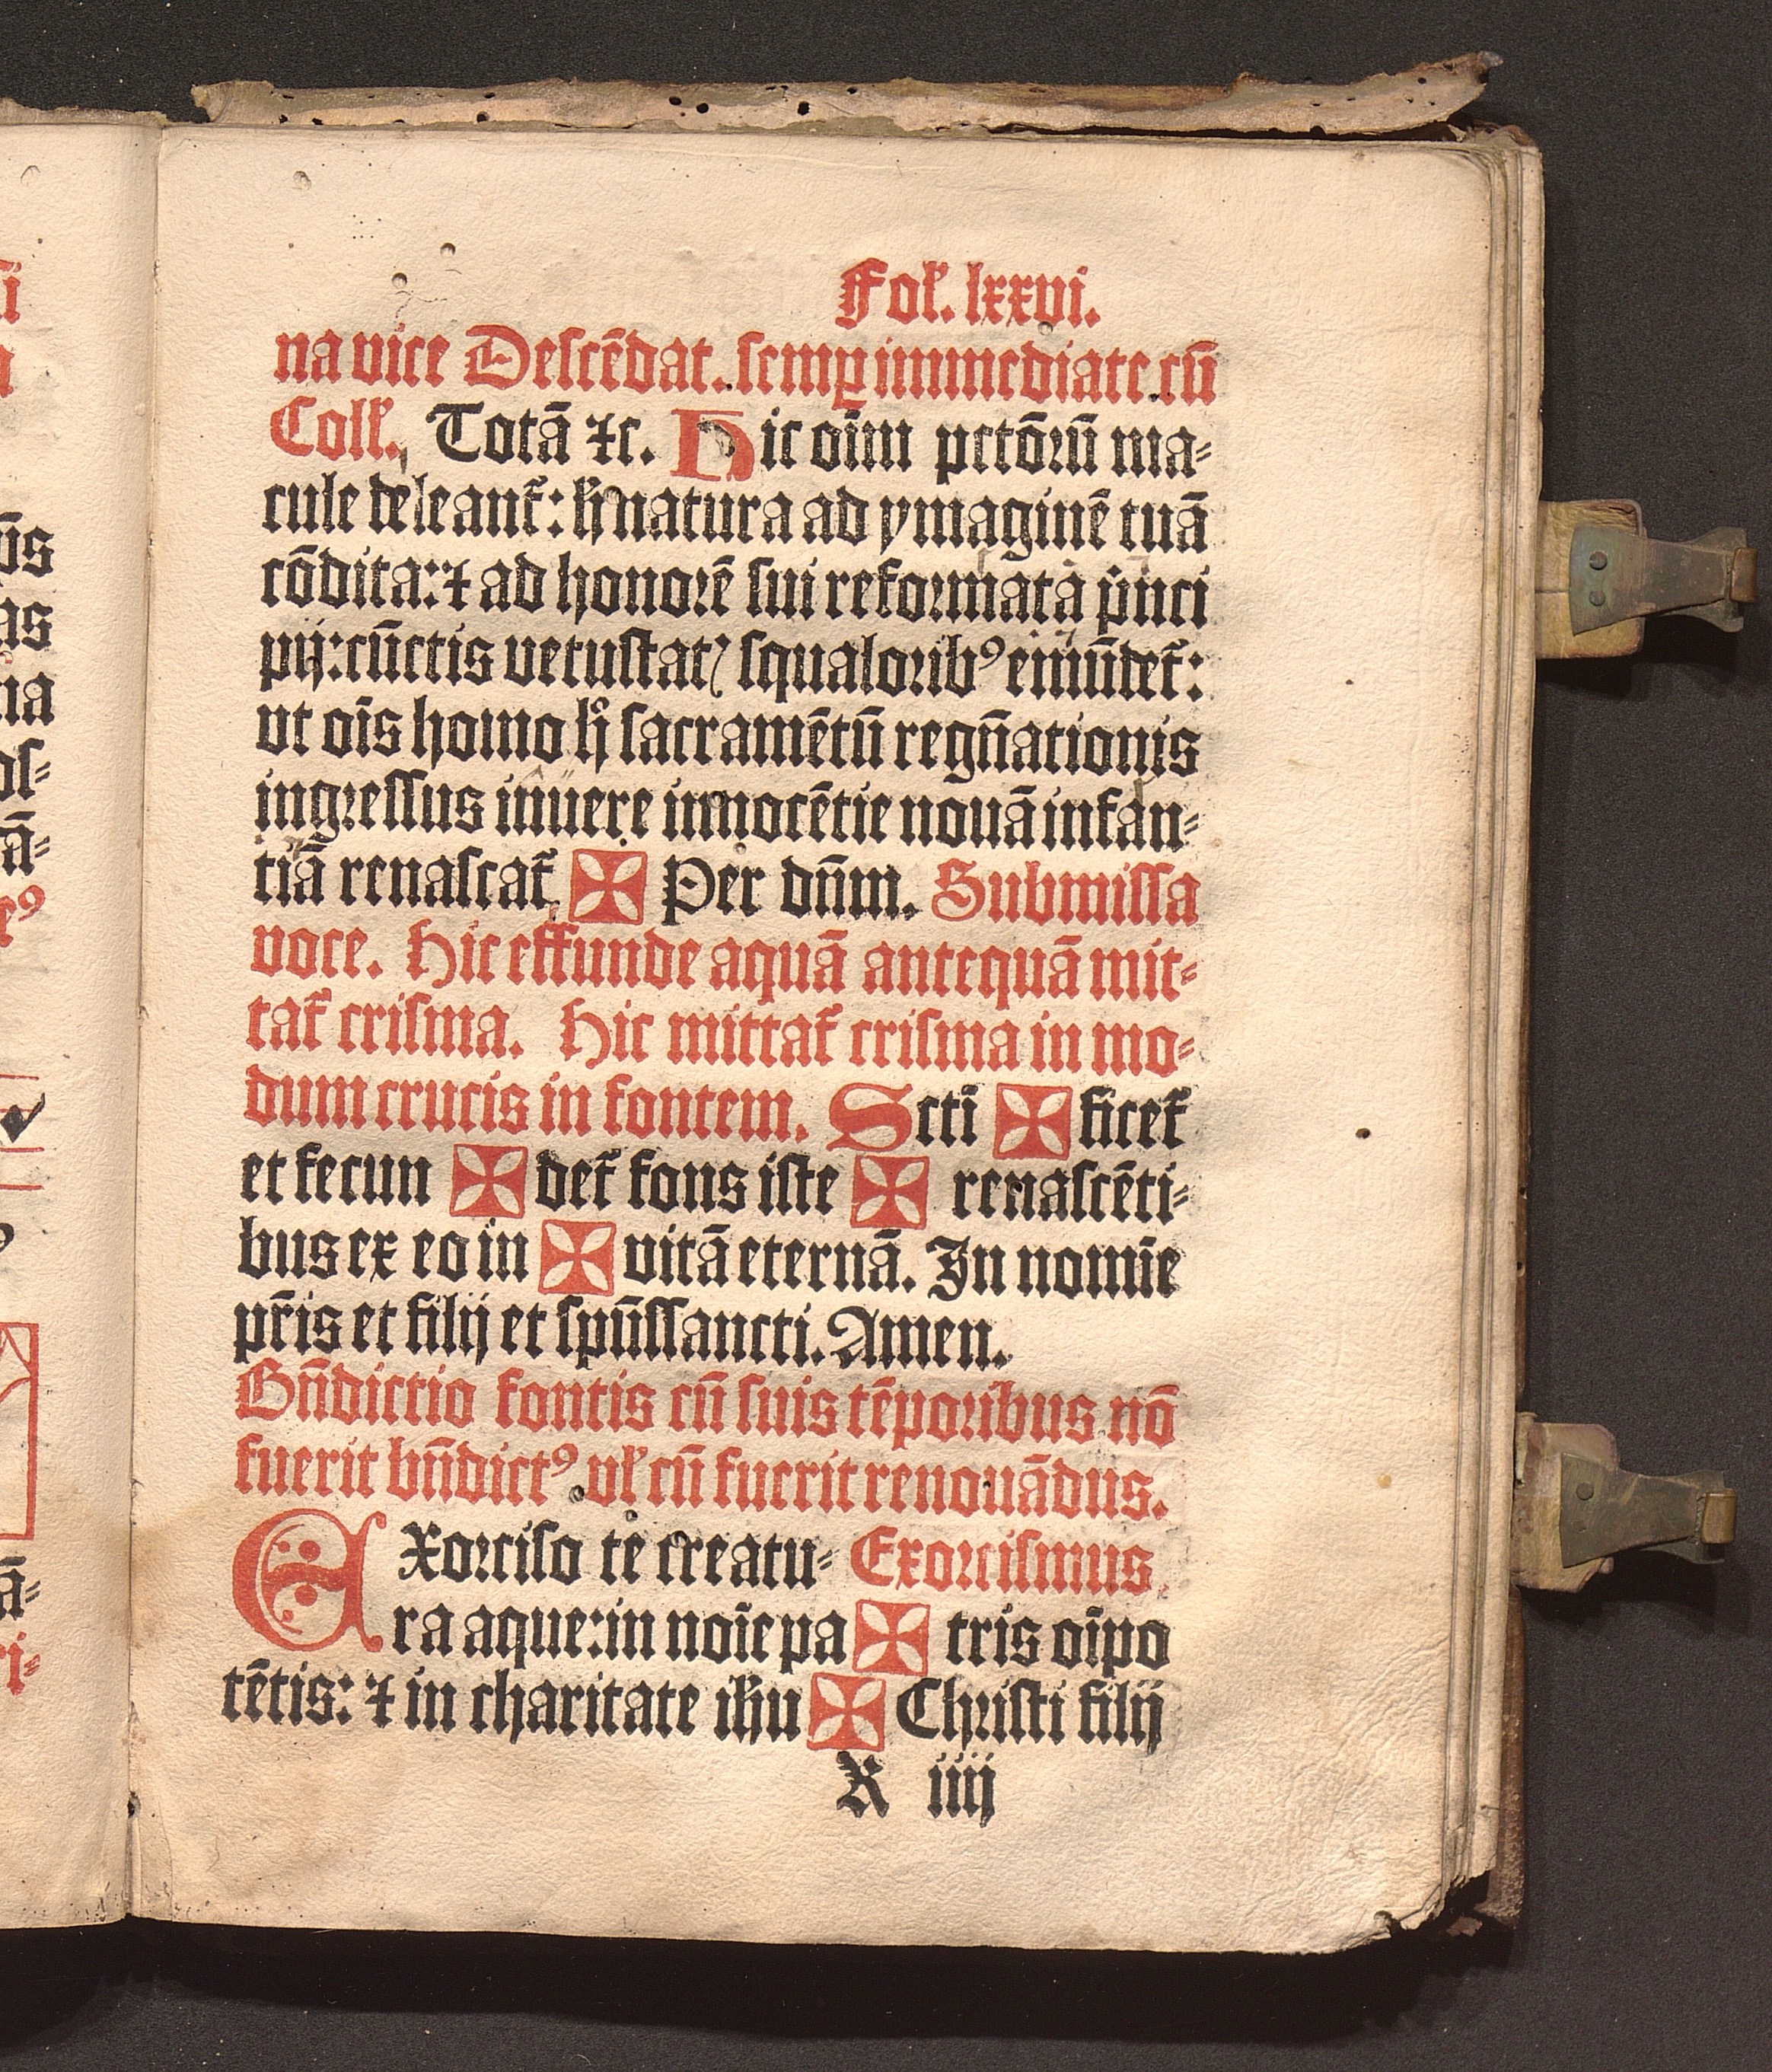 Fol'. lxxvi.
na vice Descēdat. semꝑ immediate cū
Coll'. Totā ⁊c. Hic oīm pctōꝛū ma⸗
cule deleant̄: hͨ natura ad ymaginē tuā
cōdita: ⁊ ad honoꝛē sui refoꝛmata pͥnci
pij: cūctis vetustatꝭ squaloꝛibꝰ emūdet̄:
vt oīs homo hͦ sacramētū regn̄ationis
ingressus in vere innocētie nouā infan⸗
tiā renascat̄ ✠ Per dn̄m. Submissa
voce. Hic effunde aquā antequā mit⸗
tat̄ crisma. Hic mittat̄ crisma in mo⸗
dum crucis in fontem. Sctī ✠ ficet̄
et fecun ✠ det̄ fons iste ✠ renascēti⸗
bus ex eo in ✠ vitā eternā. In nomīe
pr̄is et filij et spūssancti. Amen.
Bn̄dictio fontis cū suis tēpoꝛibus nō
fuerit bn̄dictꝰ vl' cū fuerit renouādus.
EXoꝛciso te creatu⸗ Exoꝛcismus
ra aque: in noīe pa ✠ tris oīpo
tētis: ⁊ in charitate ih̄u ✠ Chꝛisti filij
K iiij